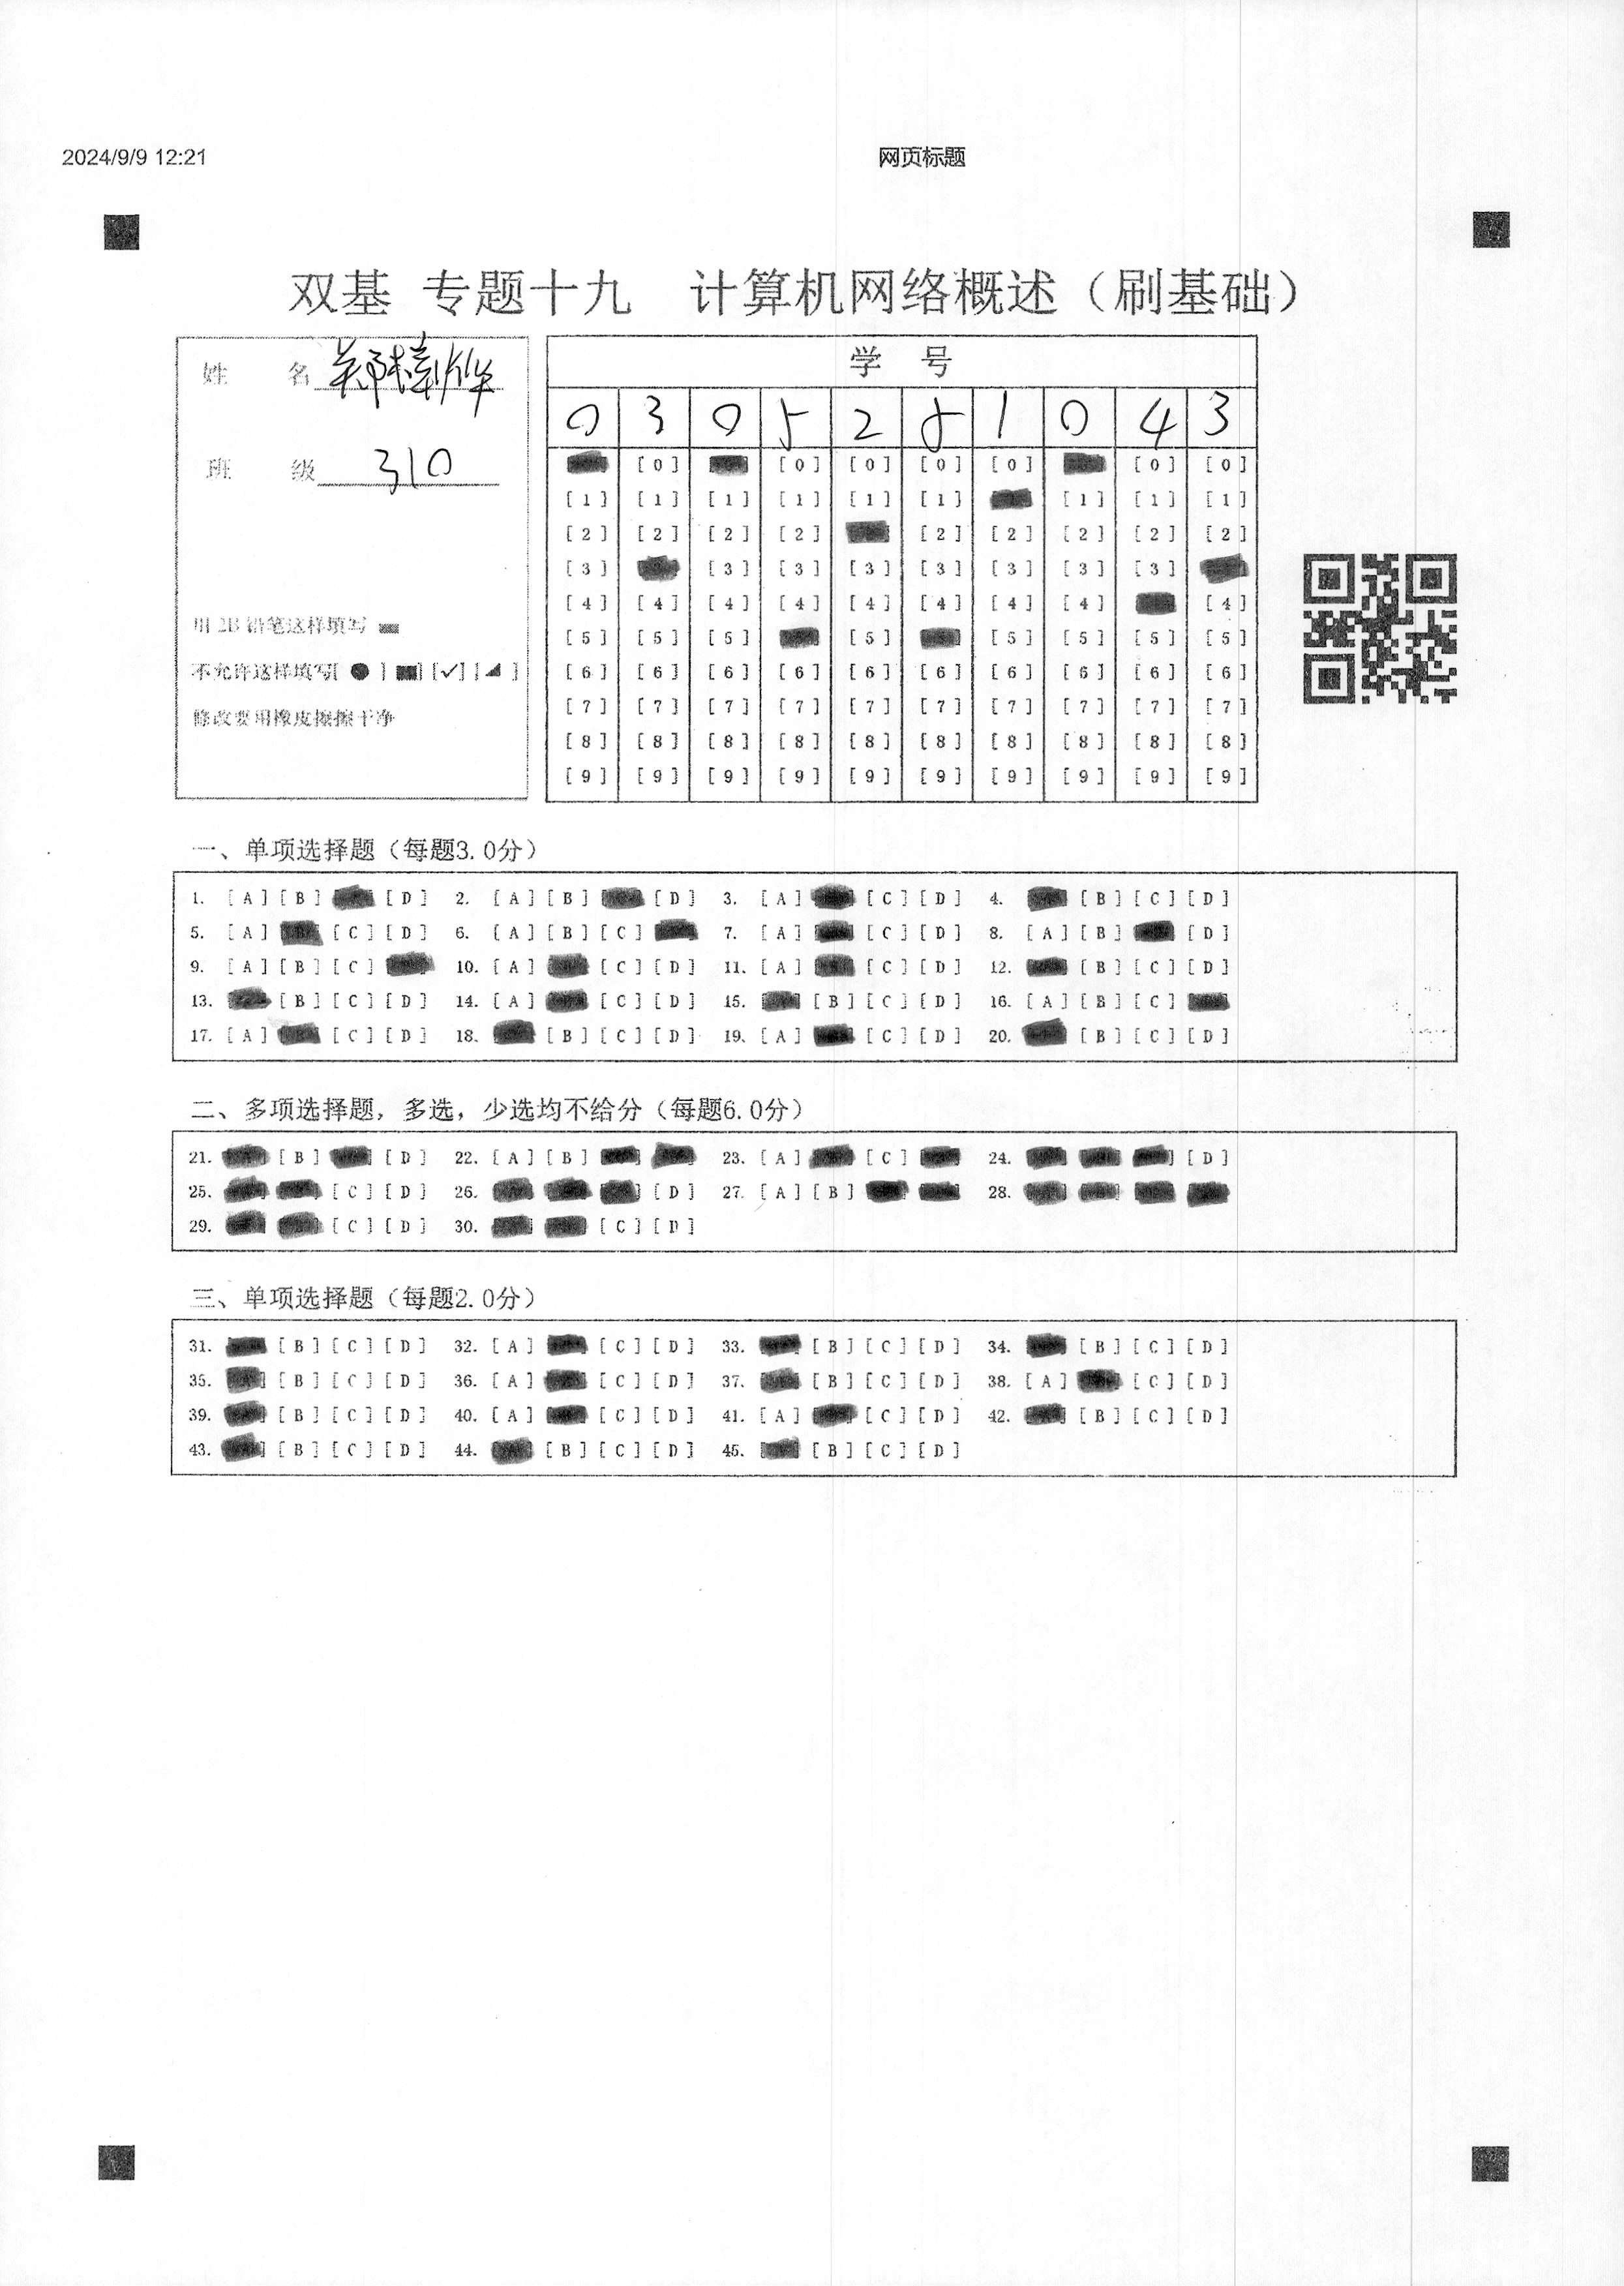 2024/9/9 12:21 网页标题
双基 专题十九 计算机网络概述（刷基础）
姓 名
班 级 310
用 2B 铅笔这样填写
不允许这样填写[ ● ] [■] [✓] [◢ ]
修改要用橡皮擦擦干净
学 号
0 3 0 5 2 5 1 0 4 3
[0] [0] [0] [0] [0] [0] [0]
[1] [1] [1] [1] [1] [1] [1] [1] [1]
[2] [2] [2] [2] [2] [2] [2] [2] [2]
[3] [3] [3] [3] [3] [3] [3] [3]
[4] [4] [4] [4] [4] [4] [4] [4] [4]
[5] [5] [5] [5] [5] [5] [5] [5]
[6] [6] [6] [6] [6] [6] [6] [6] [6] [6]
[7] [7] [7] [7] [7] [7] [7] [7] [7] [7]
[8] [8] [8] [8] [8] [8] [8] [8] [8] [8]
[9] [9] [9] [9] [9] [9] [9] [9] [9] [9]
一、单项选择题（每题3.0分）
1. [A] [B] [D] 2. [A] [B] [D] 3. [A] [C] [D] 4. [B] [C] [D]
5. [A] [C] [D] 6. [A] [B] [C] 7. [A] [C] [D] 8. [A] [B] [D]
9. [A] [B] [C] 10. [A] [C] [D] 11. [A] [C] [D] 12. [B] [C] [D]
13. [B] [C] [D] 14. [A] [C] [D] 15. [B] [C] [D] 16. [A] [B] [C]
17. [A] [C] [D] 18. [B] [C] [D] 19. [A] [C] [D] 20. [B] [C] [D]
二、多项选择题，多选，少选均不给分（每题6.0分）
21. [B] [D] 22. [A] [B] 23. [A] [C] 24. [D]
25. [C] [D] 26. [D] 27. [A] [B] 28.
29. [C] [D] 30. [C] [D]
三、单项选择题（每题2.0分）
31. [B] [C] [D] 32. [A] [C] [D] 33. [B] [C] [D] 34. [B] [C] [D]
35. [B] [C] [D] 36. [A] [C] [D] 37. [B] [C] [D] 38. [A] [C] [D]
39. [B] [C] [D] 40. [A] [C] [D] 41. [A] [C] [D] 42. [B] [C] [D]
43. [B] [C] [D] 44. [B] [C] [D] 45. [B] [C] [D]